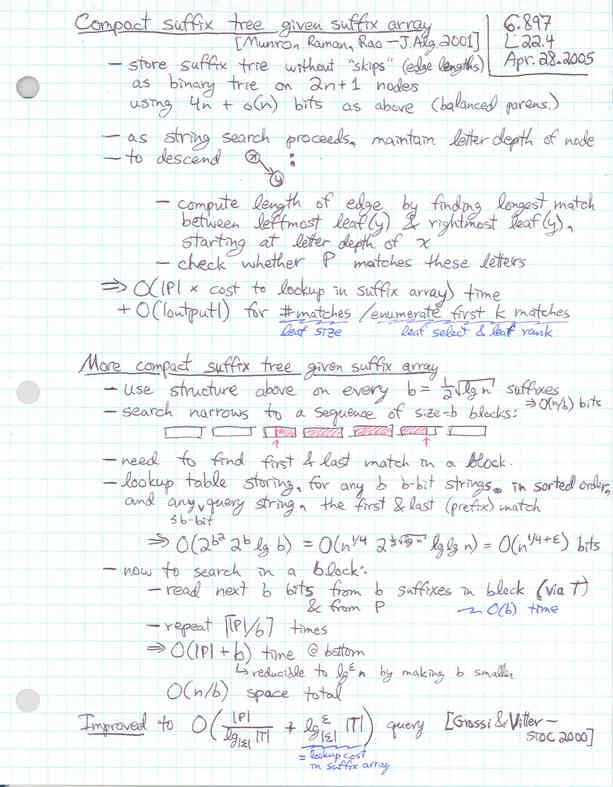 Compact suffix tree given suffix array
6.897
L22.4
Apr. 28. 2005
[Munro, Raman, Rao — J.Alg 2001]
— store suffix trie without "skips" (edge lengths)
as binary trie on 2n+1 nodes
using 4n + o(n) bits as above (balanced parens.)
— as string search proceeds, maintain letter depth of node
— to descend x y :
— compute length of edge by finding longest match
between leftmost leaf(y) & rightmost leaf(y),
starting at letter depth of x
— check whether P matches these letters
⇒ O(|P| × cost to lookup in suffix array) time
+ O(|output|) for #matches / enumerate first k matches
leaf size leaf select & leaf rank
More compact suffix tree given suffix array
— use structure above on every b = ½√lg n suffixes
⇒ O(n/b) bits
— search narrows to a sequence of size-b blocks:
— need to find first & last match in a block.
— lookup table storing, for any b b-bit strings in sorted order,
and any query string, the first & last (prefix) match
≤b-bit
⇒ O(2^{b²} 2^b lg b) = O(n^{1/4} 2^{½√lg n} lg lg n) = O(n^{1/4+ε}) bits
— now to search in a block:
— read next b bits from b suffixes in block (via T)
& from P ~ O(b) time
— repeat ⌈|P|/b⌉ times
⇒ O(|P| + b) time @ bottom
↳ reducible to lg^ε n by making b smaller
O(n/b) space total
Improved to O(|P|/lg_{|Σ|} |T| + lg^ε_{|Σ|} |T|) query [Grossi & Vitter —
STOC 2000]
= lookup cost
in suffix array